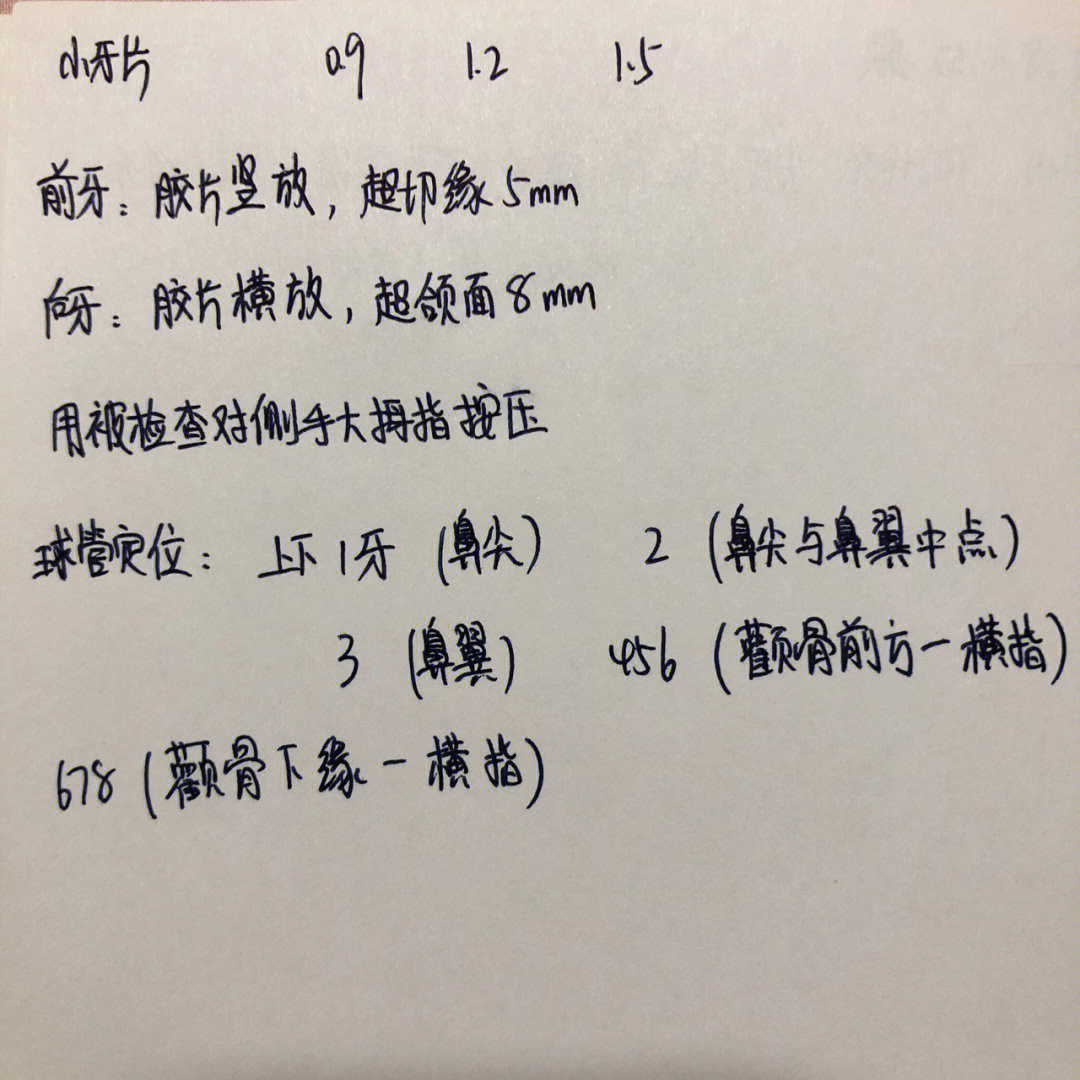 小牙片 0.9 1.2 1.5
前牙：胶片竖放，超切缘5mm
后牙：胶片横放，超颌面8mm
用被检查对侧手大拇指按压
球管定位：上下1牙（鼻尖） 2（鼻尖与鼻翼中点）
3（鼻翼） 456（颧骨前方一横指）
678（颧骨下缘一横指）